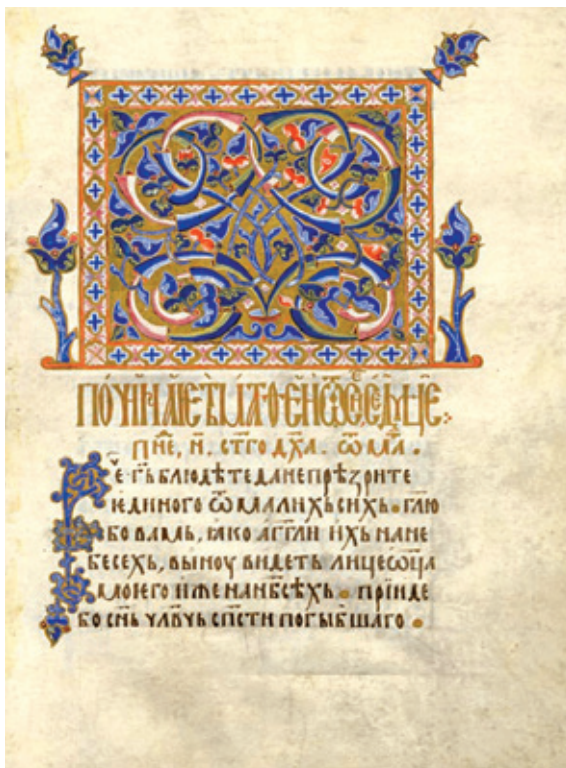 ст҃го дх҃а. ѿ
Рⷱ҇е г҃ь блюдѣте да не прѣзрите
ѥдиного ѿ малихь сихь. гл҃ю
бо вамь, ꙗко агг҃ли ихь на не
бесехь, выноу видеть лице ѡц҃а
моѥго иже на нб҃сѣхь. прїиде
бо сн҃ь чл҃вчь сп҃сти погыбшаго.